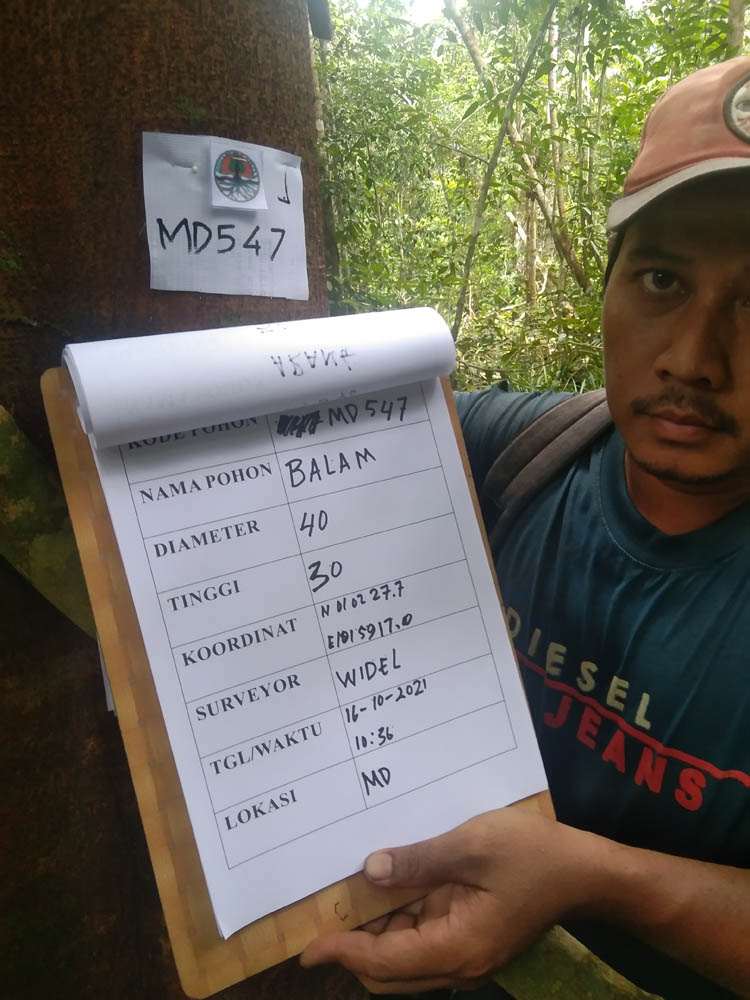 MD547
KODE POHON MD 547
NAMA POHON BALAM
DIAMETER 40
TINGGI 30
KOORDINAT N 01 02 27.7
E 101 59 17.0
SURVEYOR WIDEL
TGL/WAKTU 16-10-2021
10:36
LOKASI MD
DIESEL
JEANS